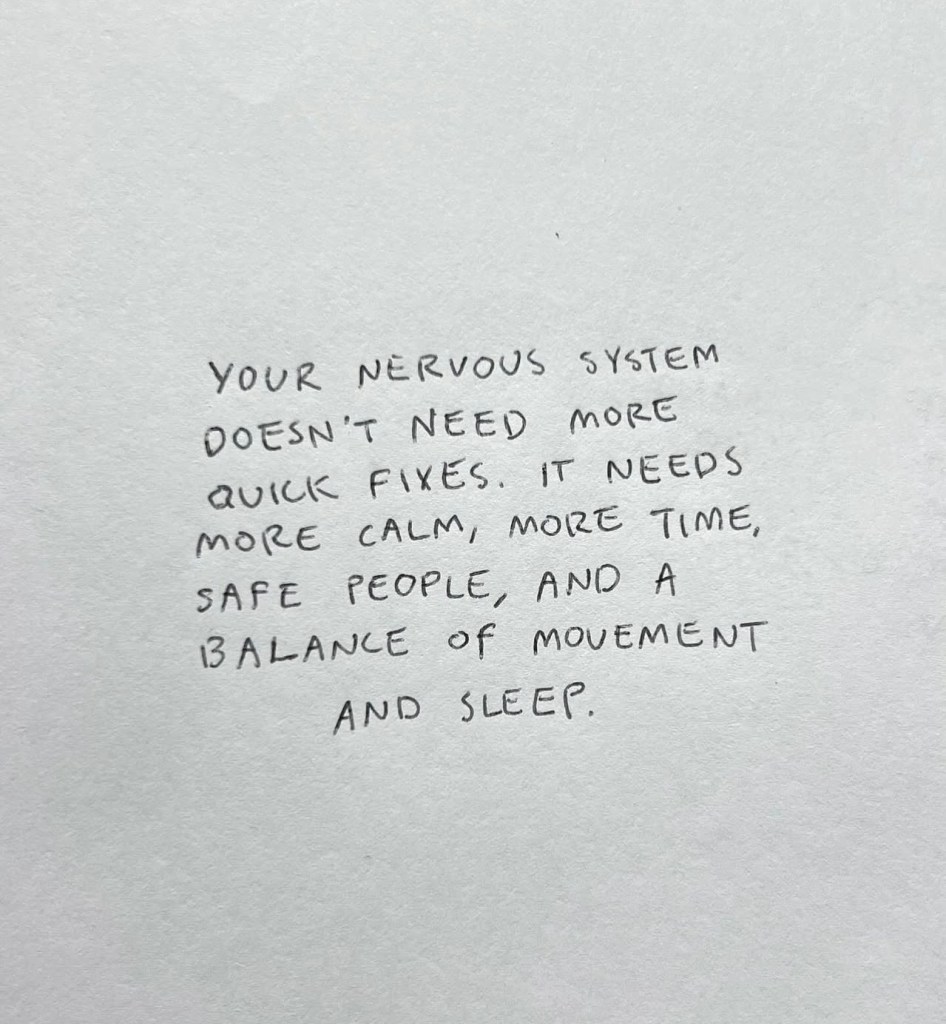 YOUR NERVOUS SYSTEM
DOESN'T NEED MORE
QUICK FIXES. IT NEEDS
MORE CALM, MORE TIME,
SAFE PEOPLE, AND A
BALANCE OF MOVEMENT
AND SLEEP.